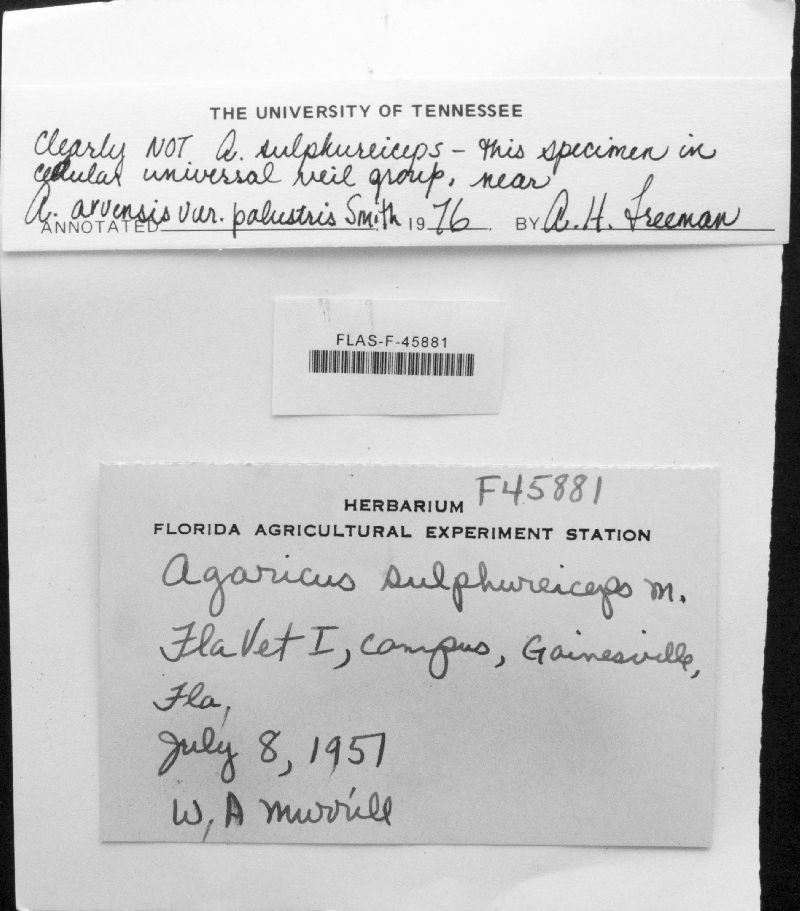 THE UNIVERSITY OF TENNESSEE
Clearly NOT A. sulphureiceps – this specimen in
cellular universal veil group, near
A. arvensis var. palustris Smith
ANNOTATED 1976. BY A. H. Freeman
FLAS-F-45881
F45881
HERBARIUM
FLORIDA AGRICULTURAL EXPERIMENT STATION
Agaricus sulphureiceps M.
Fla Vet I, campus, Gainesville,
Fla,
July 8, 1951
W, A Murrill